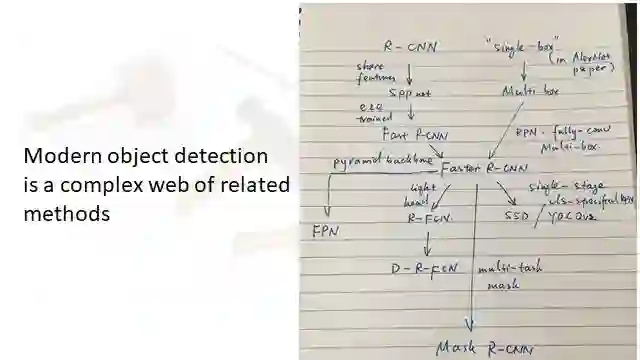 Modern object detection
is a complex web of related
methods
R-CNN
"single-box"
(in AlexNet
paper)
share
features
SPPnet
Multibox
e2e
trained
Fast R-CNN
RPN: fully-conv
Multi-box
pyramid backbone
Faster R-CNN
light
head
single-stage
cls-specific RPN
R-FCN
SSD / YOLOv2
FPN
D-R-FCN
multi-task
mask
Mask R-CNN